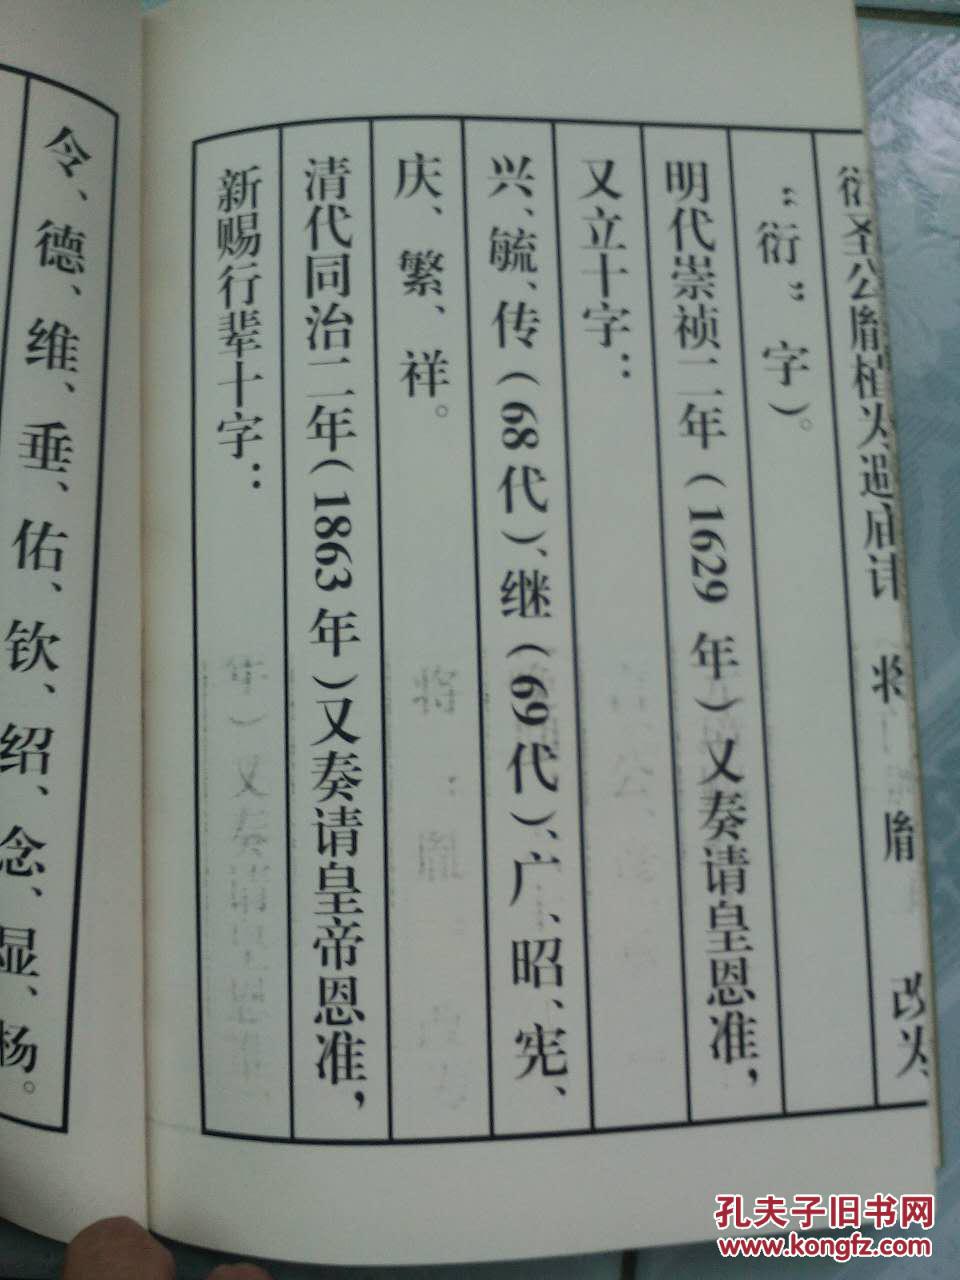 衍圣公胤植为避庙讳 将 胤 改为
“衍”字)。
明代崇祯二年(1629年)又奏请皇恩准,
又立十字:
兴、毓、传(68代)、继(69代)、广、昭、宪、
庆、繁、祥。
清代同治二年(1863年)又奏请皇帝恩准,
新赐行辈十字:
令、德、维、垂、佑、钦、绍、念、显、杨。
孔夫子旧书网
www.kongfz.com